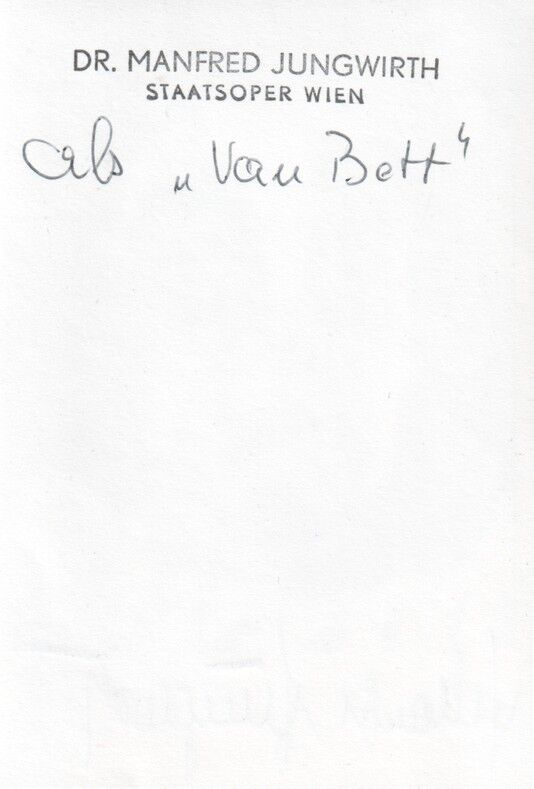 DR. MANFRED JUNGWIRTH
STAATSOPER WIEN
als „Van Bett“